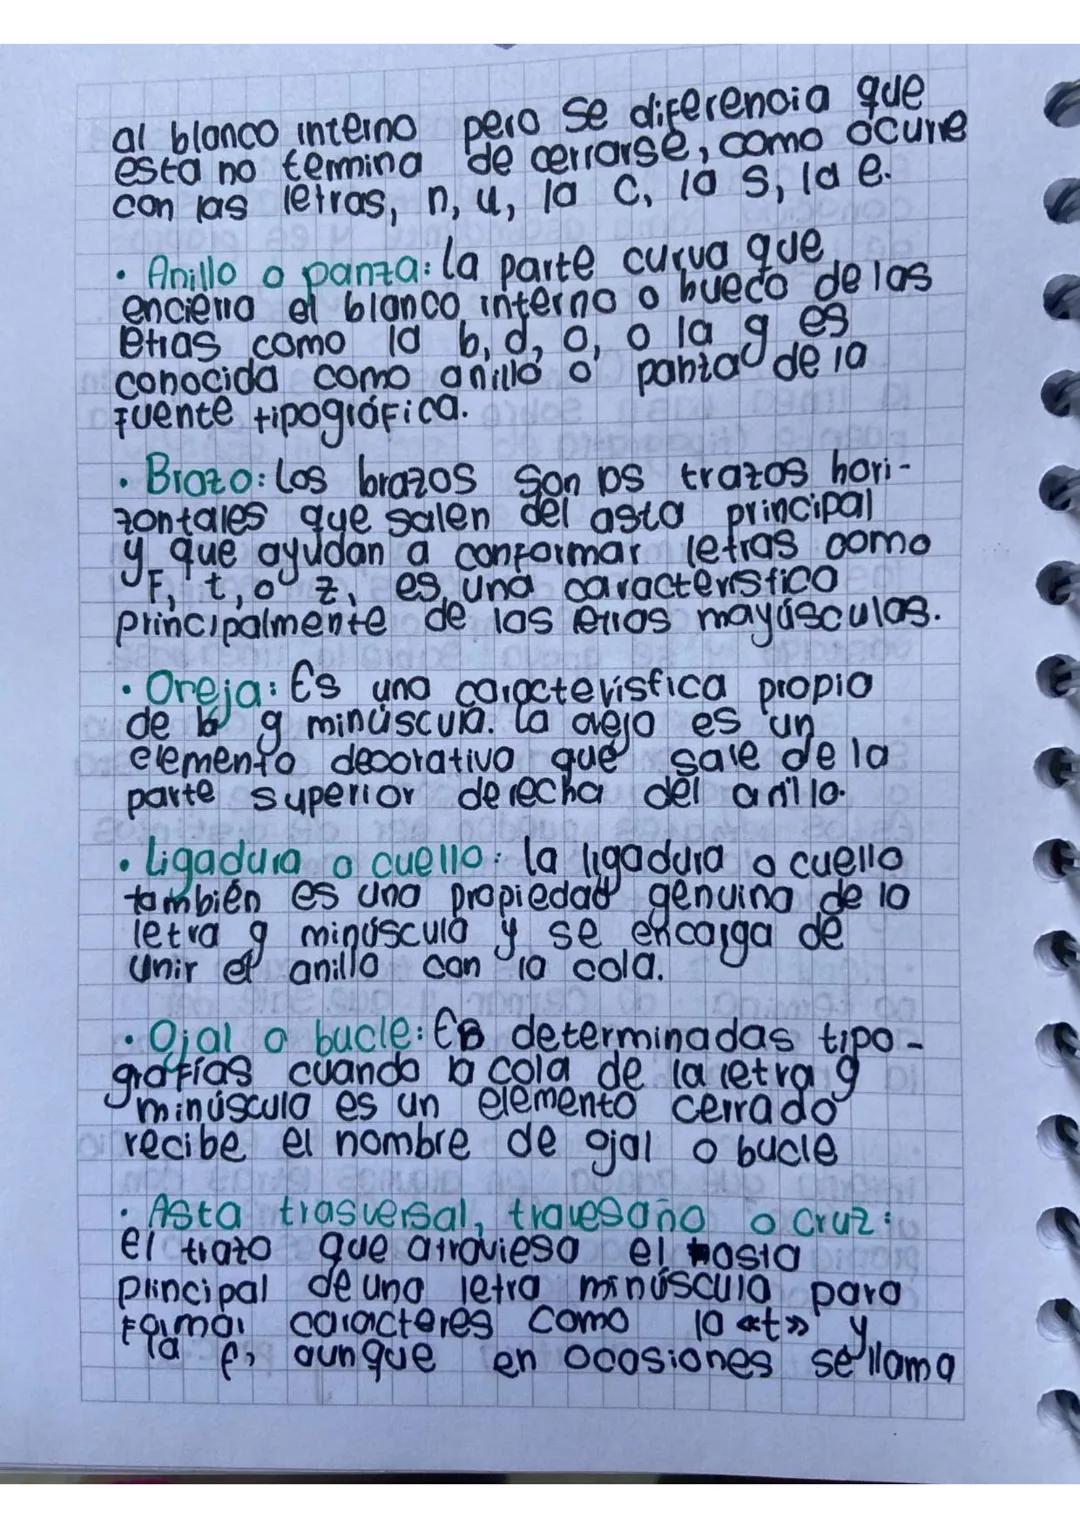 al blanco interno pero se diferencia que
esta no termina de cerrarse, como ocurre
con las letras, n, u, la c, la s, la e.
· Anillo o panza: la parte curva que
encierra el blanco interno o hueco de las
letras como la b, d, o, o la g es
conocida como anillo o panza de la
fuente tipográfica.
· Brazo: Los brazos son los trazos hori-
zontales que salen del asta principal
y que ayudan a conformar letras como
F, t, o z, es una característico
principalmente de las letras mayúsculas.
· Oreja: Es una característica propia
de la g minúscula. La oreja es un
elemento decorativo que sale de la
parte superior derecha del anillo.
· Ligadura o cuello: la ligadura o cuello
también es una propiedad genuina de la
letra g minúscula y se encarga de
unir el anillo con la cola.
· Ojal o bucle: En determinadas tipo-
grafías cuando la cola de la letra g
minúscula es un elemento cerrado
recibe el nombre de ojal o bucle
· Asta trasversal, travesaño o cruz:
el trazo que atraviesa el asta
principal de una letra minúscula para
formar caracteres como la «t» y
la f, aunque en ocasiones se llama